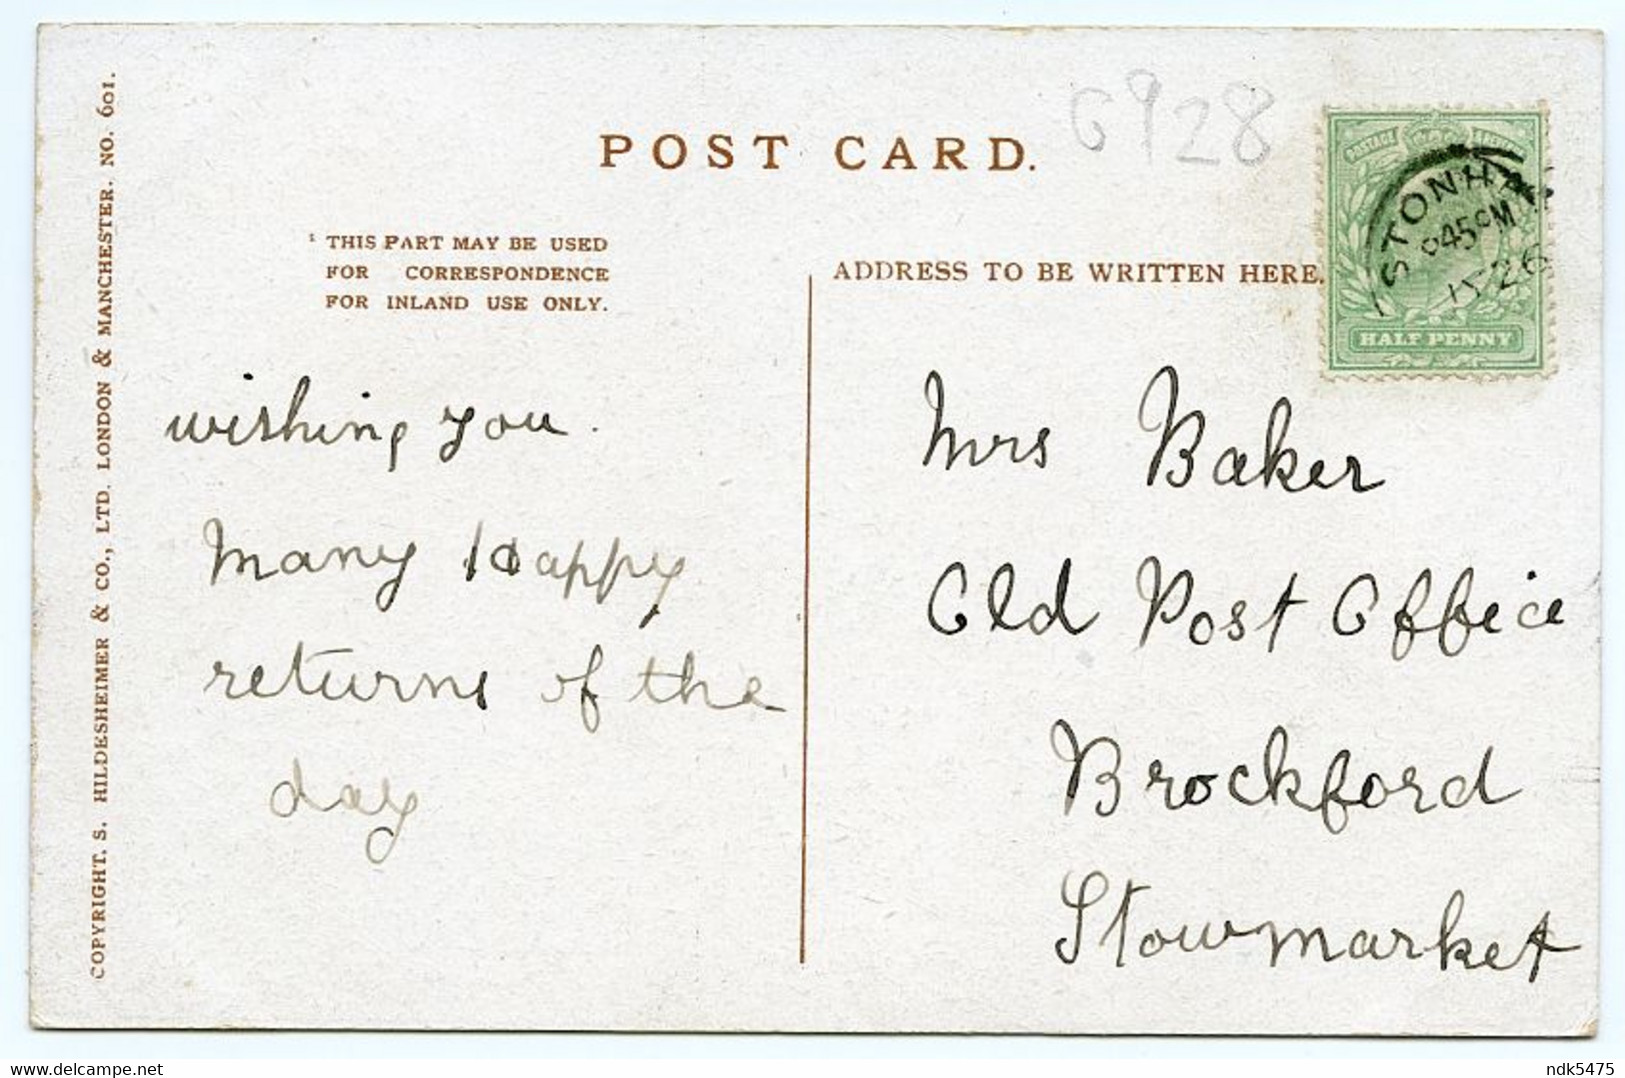 G928
POST CARD.
THIS PART MAY BE USED
FOR CORRESPONDENCE
FOR INLAND USE ONLY.
ADDRESS TO BE WRITTEN HERE.
POSTAGE
STONHA
HALF PENNY
wishing you.
Many Happy
returns of the
day
Mrs Baker
Old Post Office
Brockford
Stowmarket
COPYRIGHT. S. HILDESHEIMER & CO., LTD. LONDON & MANCHESTER. NO. 601.
delcampe.net
ndk5475